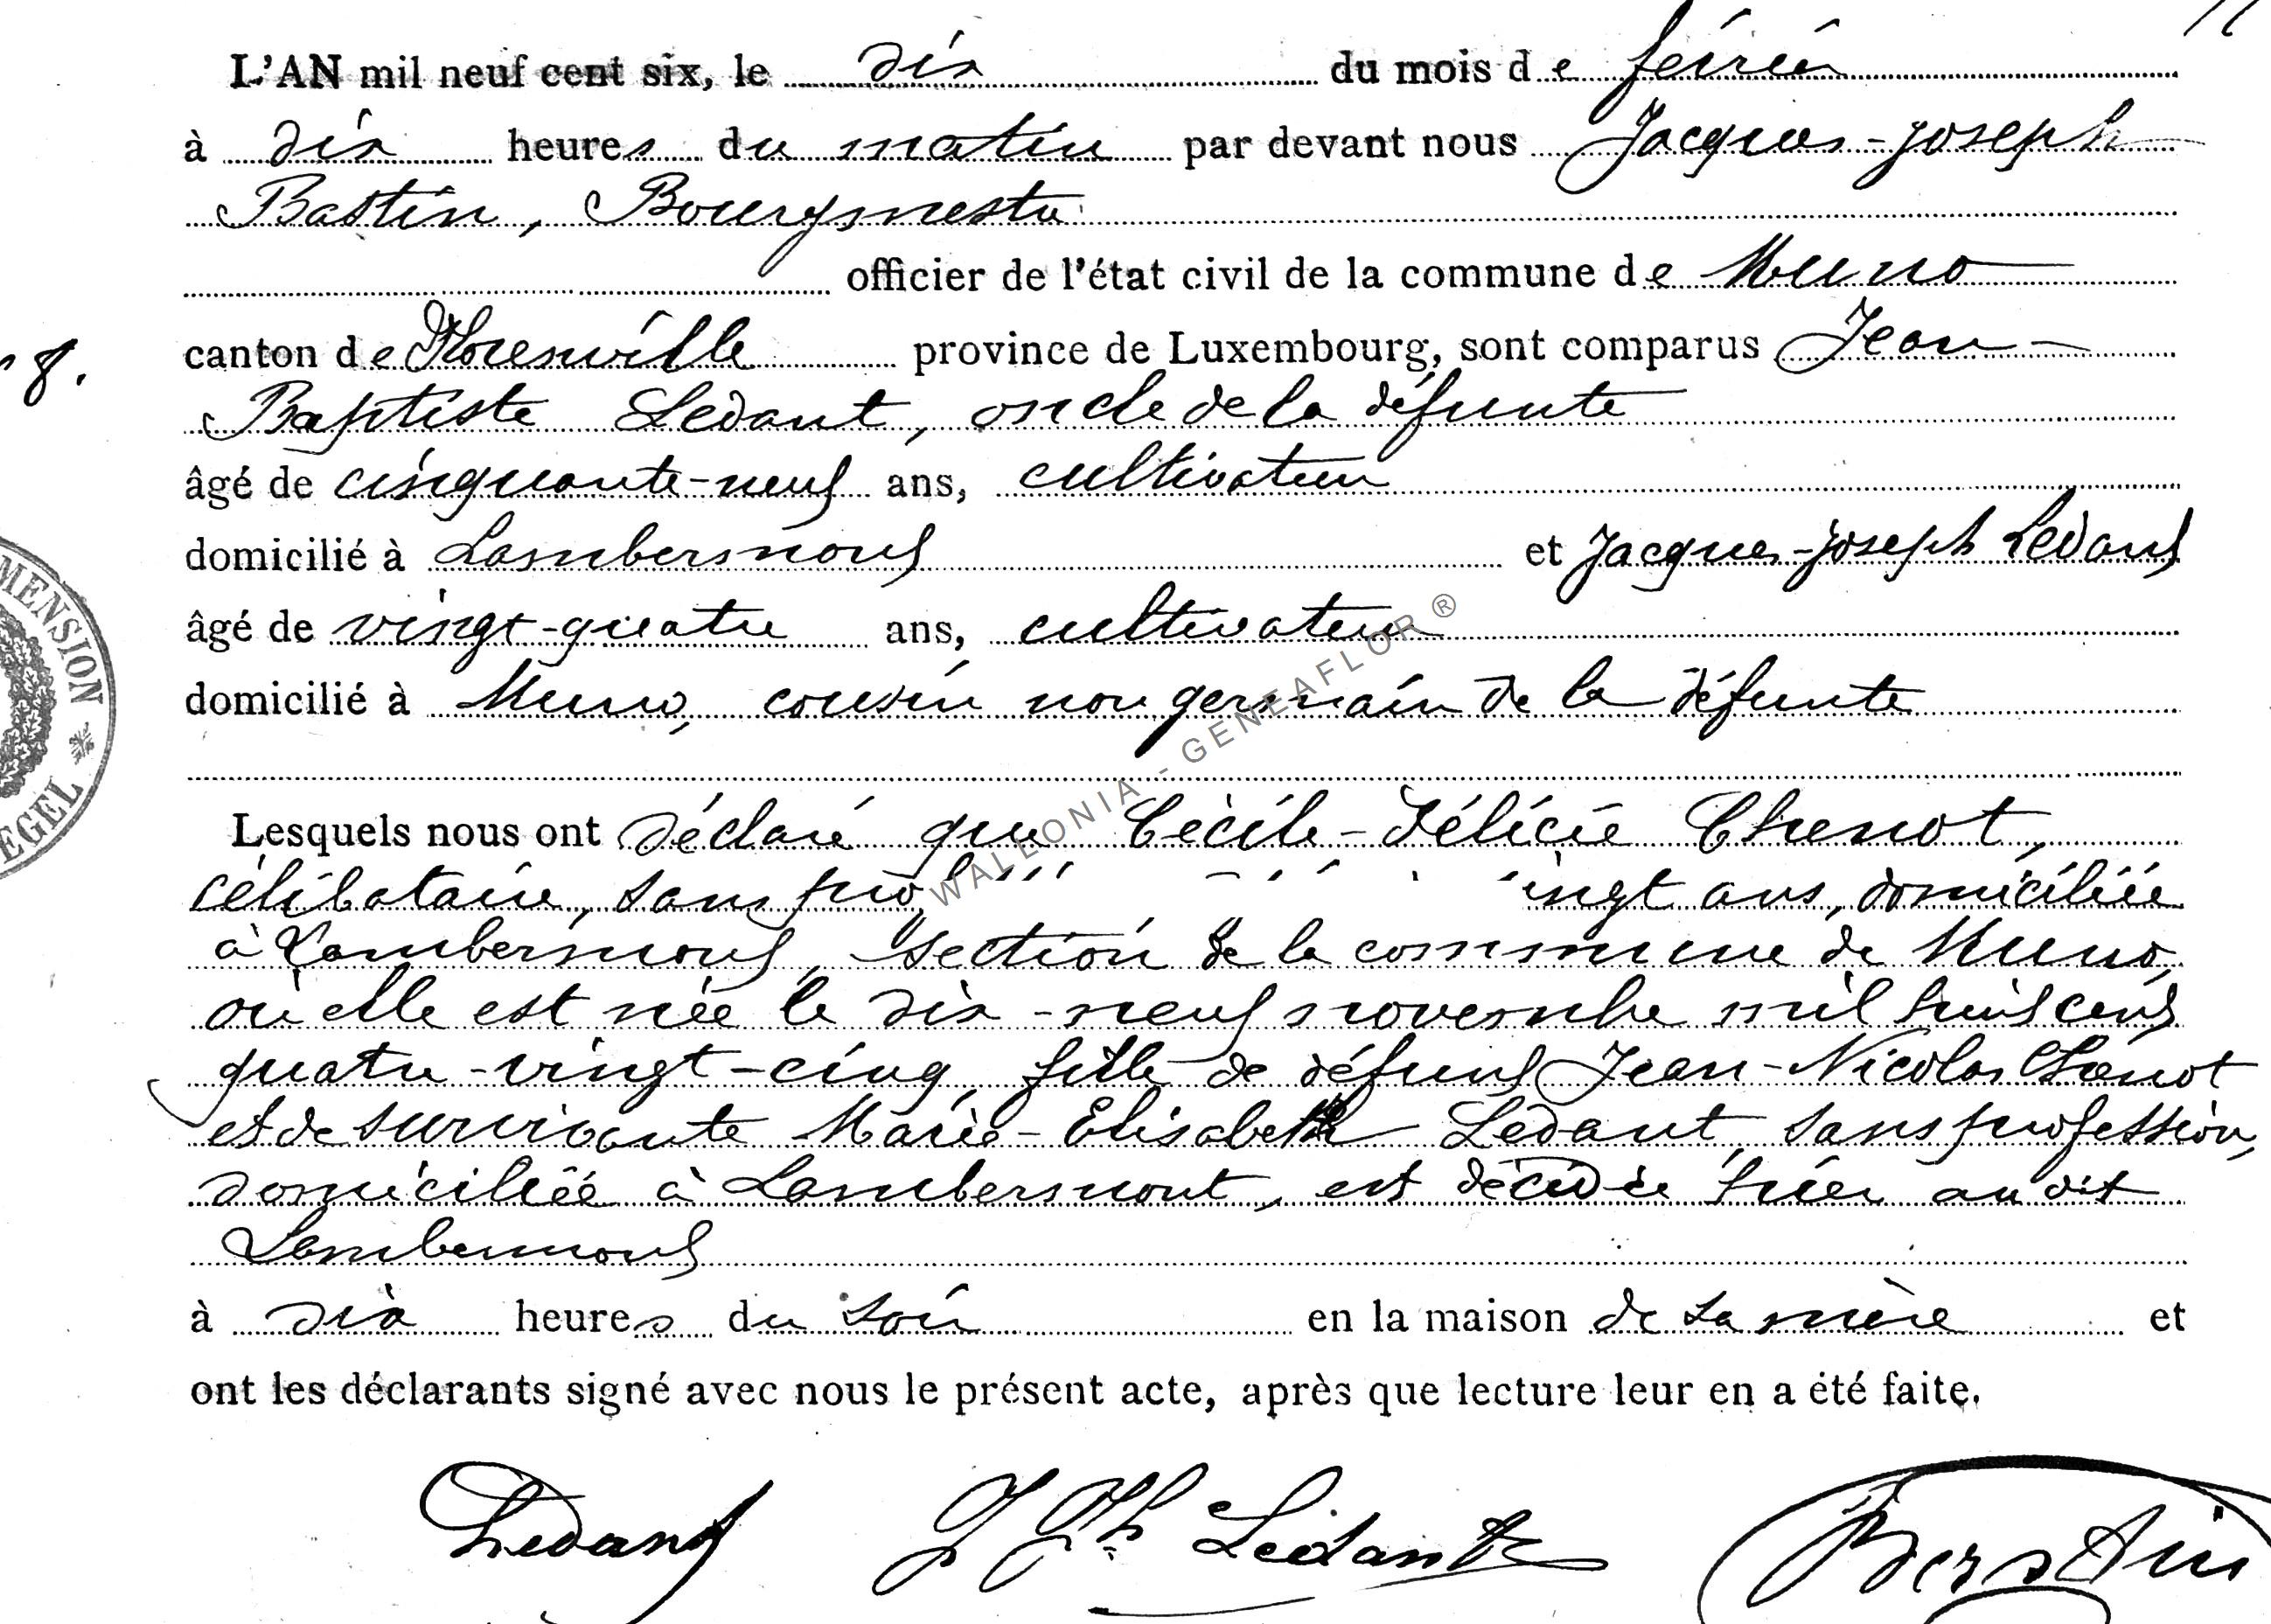 L'AN mil neuf cent six, le dix du mois de février
à dix heures du matin par devant nous Jacques-Joseph
Bastin, Bourgmestre
officier de l'état civil de la commune de Muno
canton de Florenville province de Luxembourg, sont comparus Jean-
8.
Baptiste Ledant, oncle de la défunte
âgé de cinquante-neuf ans, cultivateur
domicilié à Lambermont et Jacques-Joseph Ledant
âgé de vingt-quatre ans, cultivateur
domicilié à Muno, cousin non germain de la défunte
MENSION
EGEL
WALLONIA - GENEAFLOR ®
Lesquels nous ont déclaré que Cécile-Félicie Chenot,
célibataire, sans ingt ans, domiciliée
à Lambermont, section de la commune de Muno,
où elle est née le dix-neuf novembre mil huit cent
quatre-vingt-cinq, fille de défunt Jean-Nicolas Chenot
et de survivante Marie-Elisabeth Ledant, sans profession,
domiciliée à Lambermont, est décédée hier au dit
Lambermont
à dix heures du soir en la maison de sa mère et
ont les déclarants signé avec nous le présent acte, après que lecture leur en a été faite.
Ledant J Jh Ledant Bastin